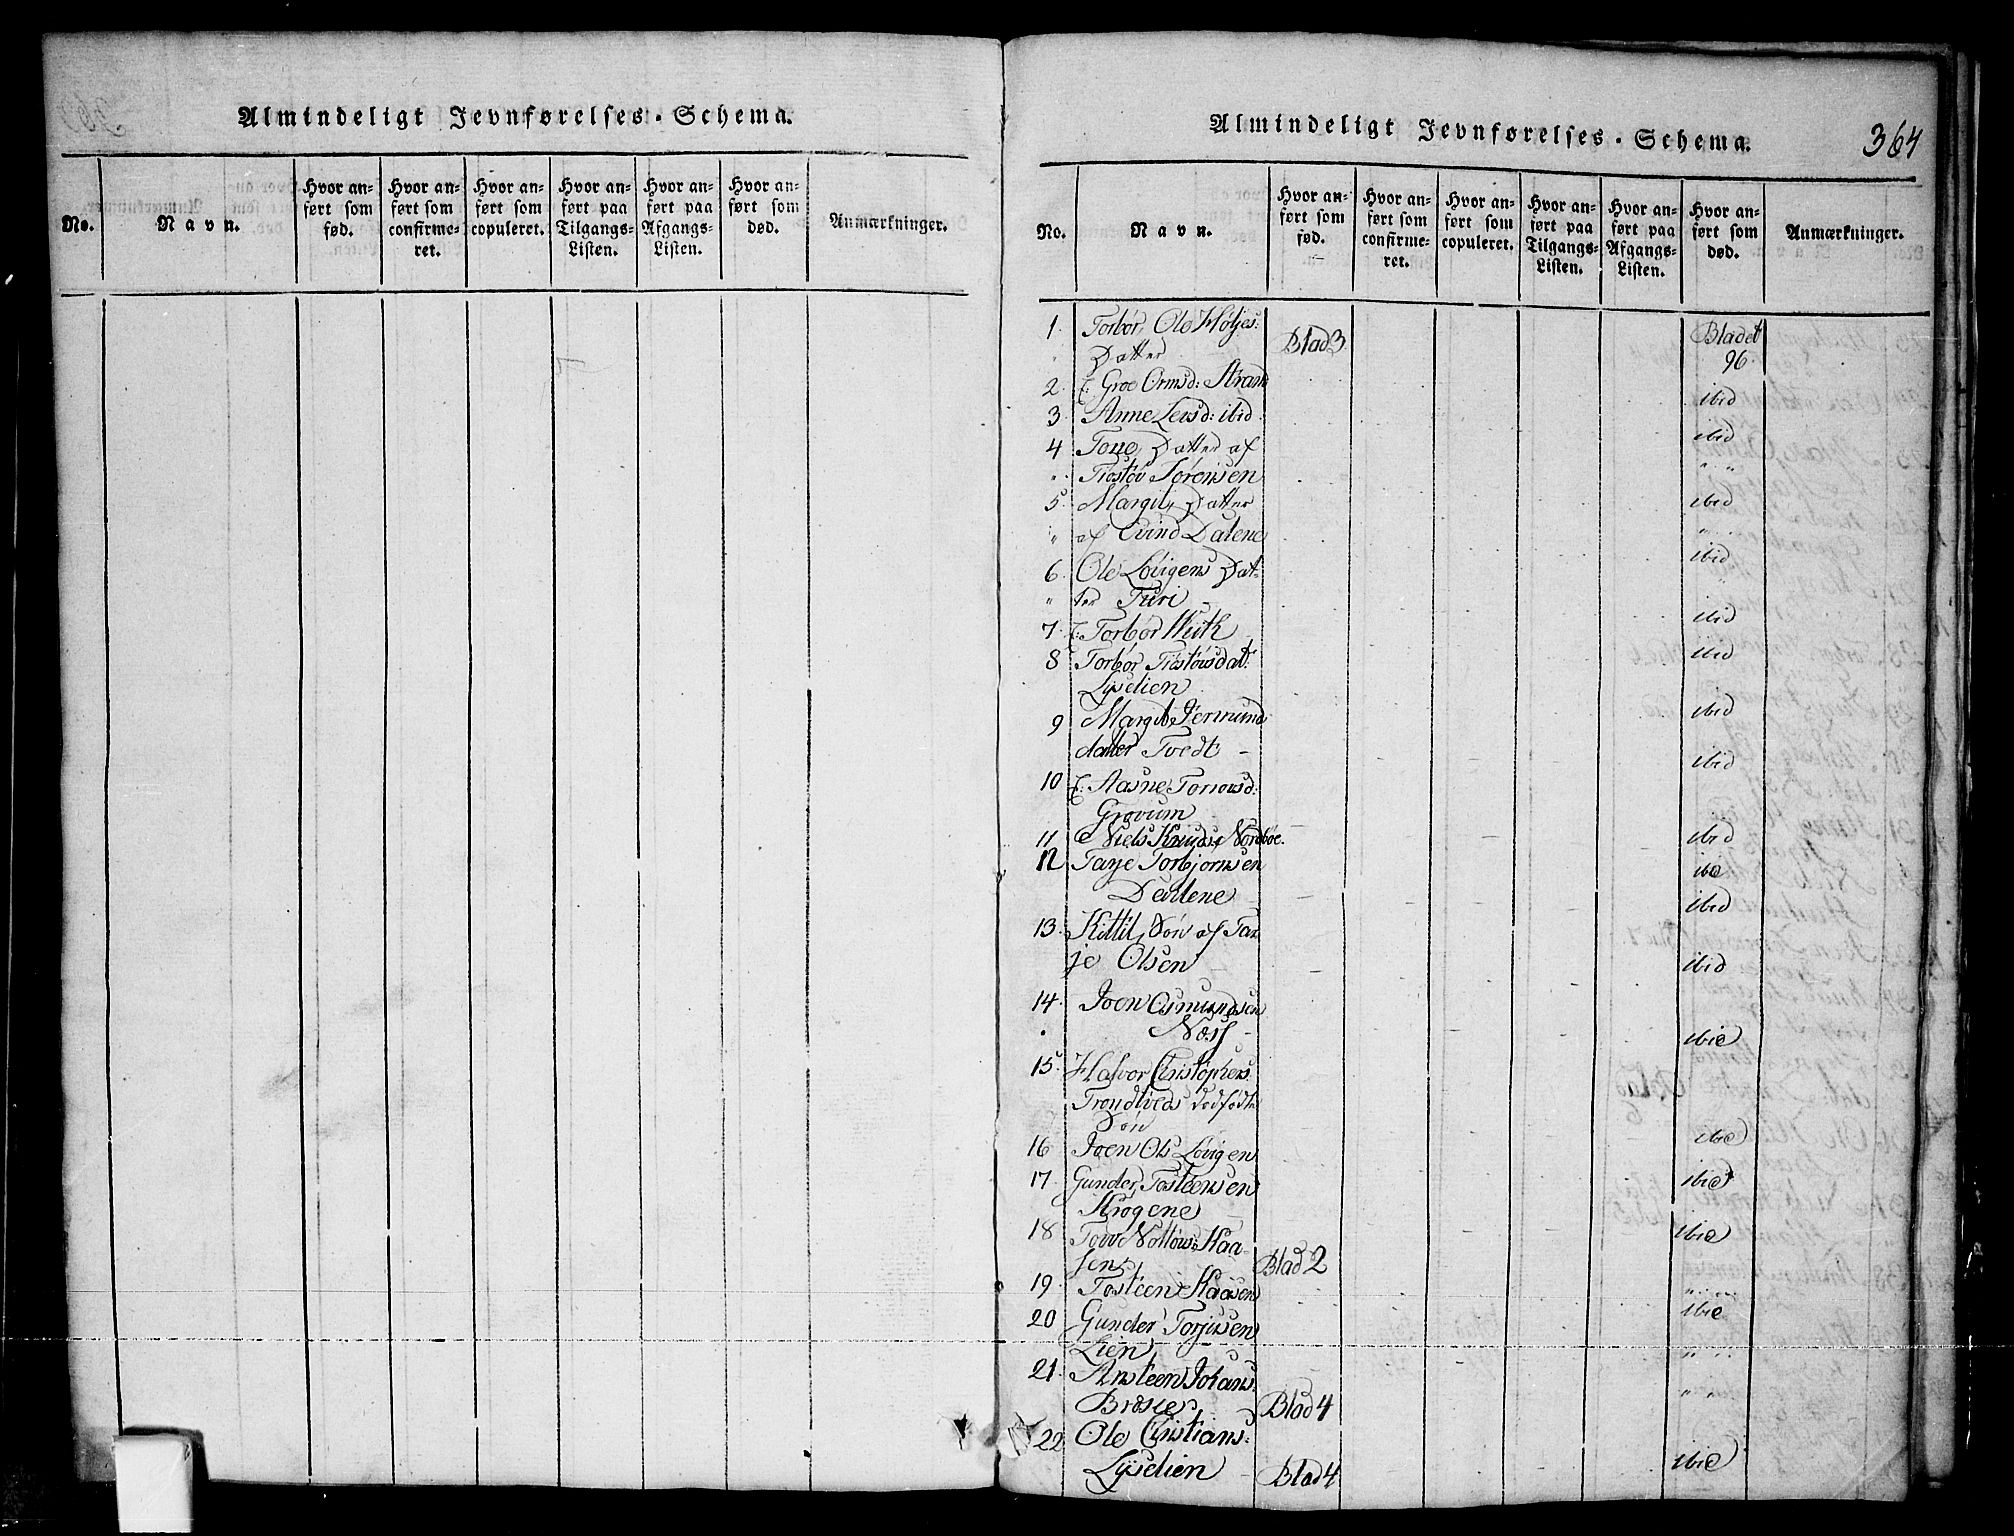 Almindeligt Jevnførelses-Schema.
No.
Navn.
Hvor an-
ført som
fød.
Hvor an-
ført som
confirme-
ret.
Hvor an-
ført som
copuleret.
Hvor an-
ført paa
Tilgangs-
Listen.
Hvor an-
ført paa
Afgangs-
Listen.
Hvor an-
ført som
død.
Anmærkninger.
Almindeligt Jevnførelses-Schema.
364
No.
Navn.
Hvor an-
ført som
fød.
Hvor an-
ført som
confirme-
ret.
Hvor an-
ført som
copuleret.
Hvor an-
ført paa
Tilgangs-
Listen.
Hvor an-
ført paa
Afgangs-
Listen.
Hvor an-
ført som
død.
Anmærkninger.
1. Torbør, Ole Høljes: Bladet
" Datter Blad 3. 96.
2 Groe Ormsd: Strand ibid
3. Anne Leersd: ibid. ibid
4 Tone, Datter af " "
" Tiostøv Sørensen
5. Margit, Datter ibid
" af Eivind Dalene "
6. Ole Løvigens Dat- ibid
" ter Turi -
7. Torbør Wiik ibid
8 Torbør Tiostøvsdat: ibid
Lysdien
9 Margit Germund ibid
datter Tvedt -
10 Aasne Torrovsd: ibid
Grovum
11 Niels Knuds: Nordbøe. ibid
12 Tarje Torbjørnsen ibid
Dærlene ibid
13. Kittil, Søn af Tar
je Olsen ibid
14. Joen Osmundsen
Næss - ibid
15. Halvor Christophers
Trondtveds dødfødte
Søn
16 Joen Ols: Løvigen ibid
17. Gunder Tosteensen ibid
Krogene
18 Tovv Nottovs: Kaa- ibid
sen Blad 2
19. Tosteen Kaasen " "
20 Gunder Torjusen ibid
Lien " "
21. Ansteen Johans: " "
Bræse Blad 4
22 Ole Christians:
Lysdien Blad 4 ibid